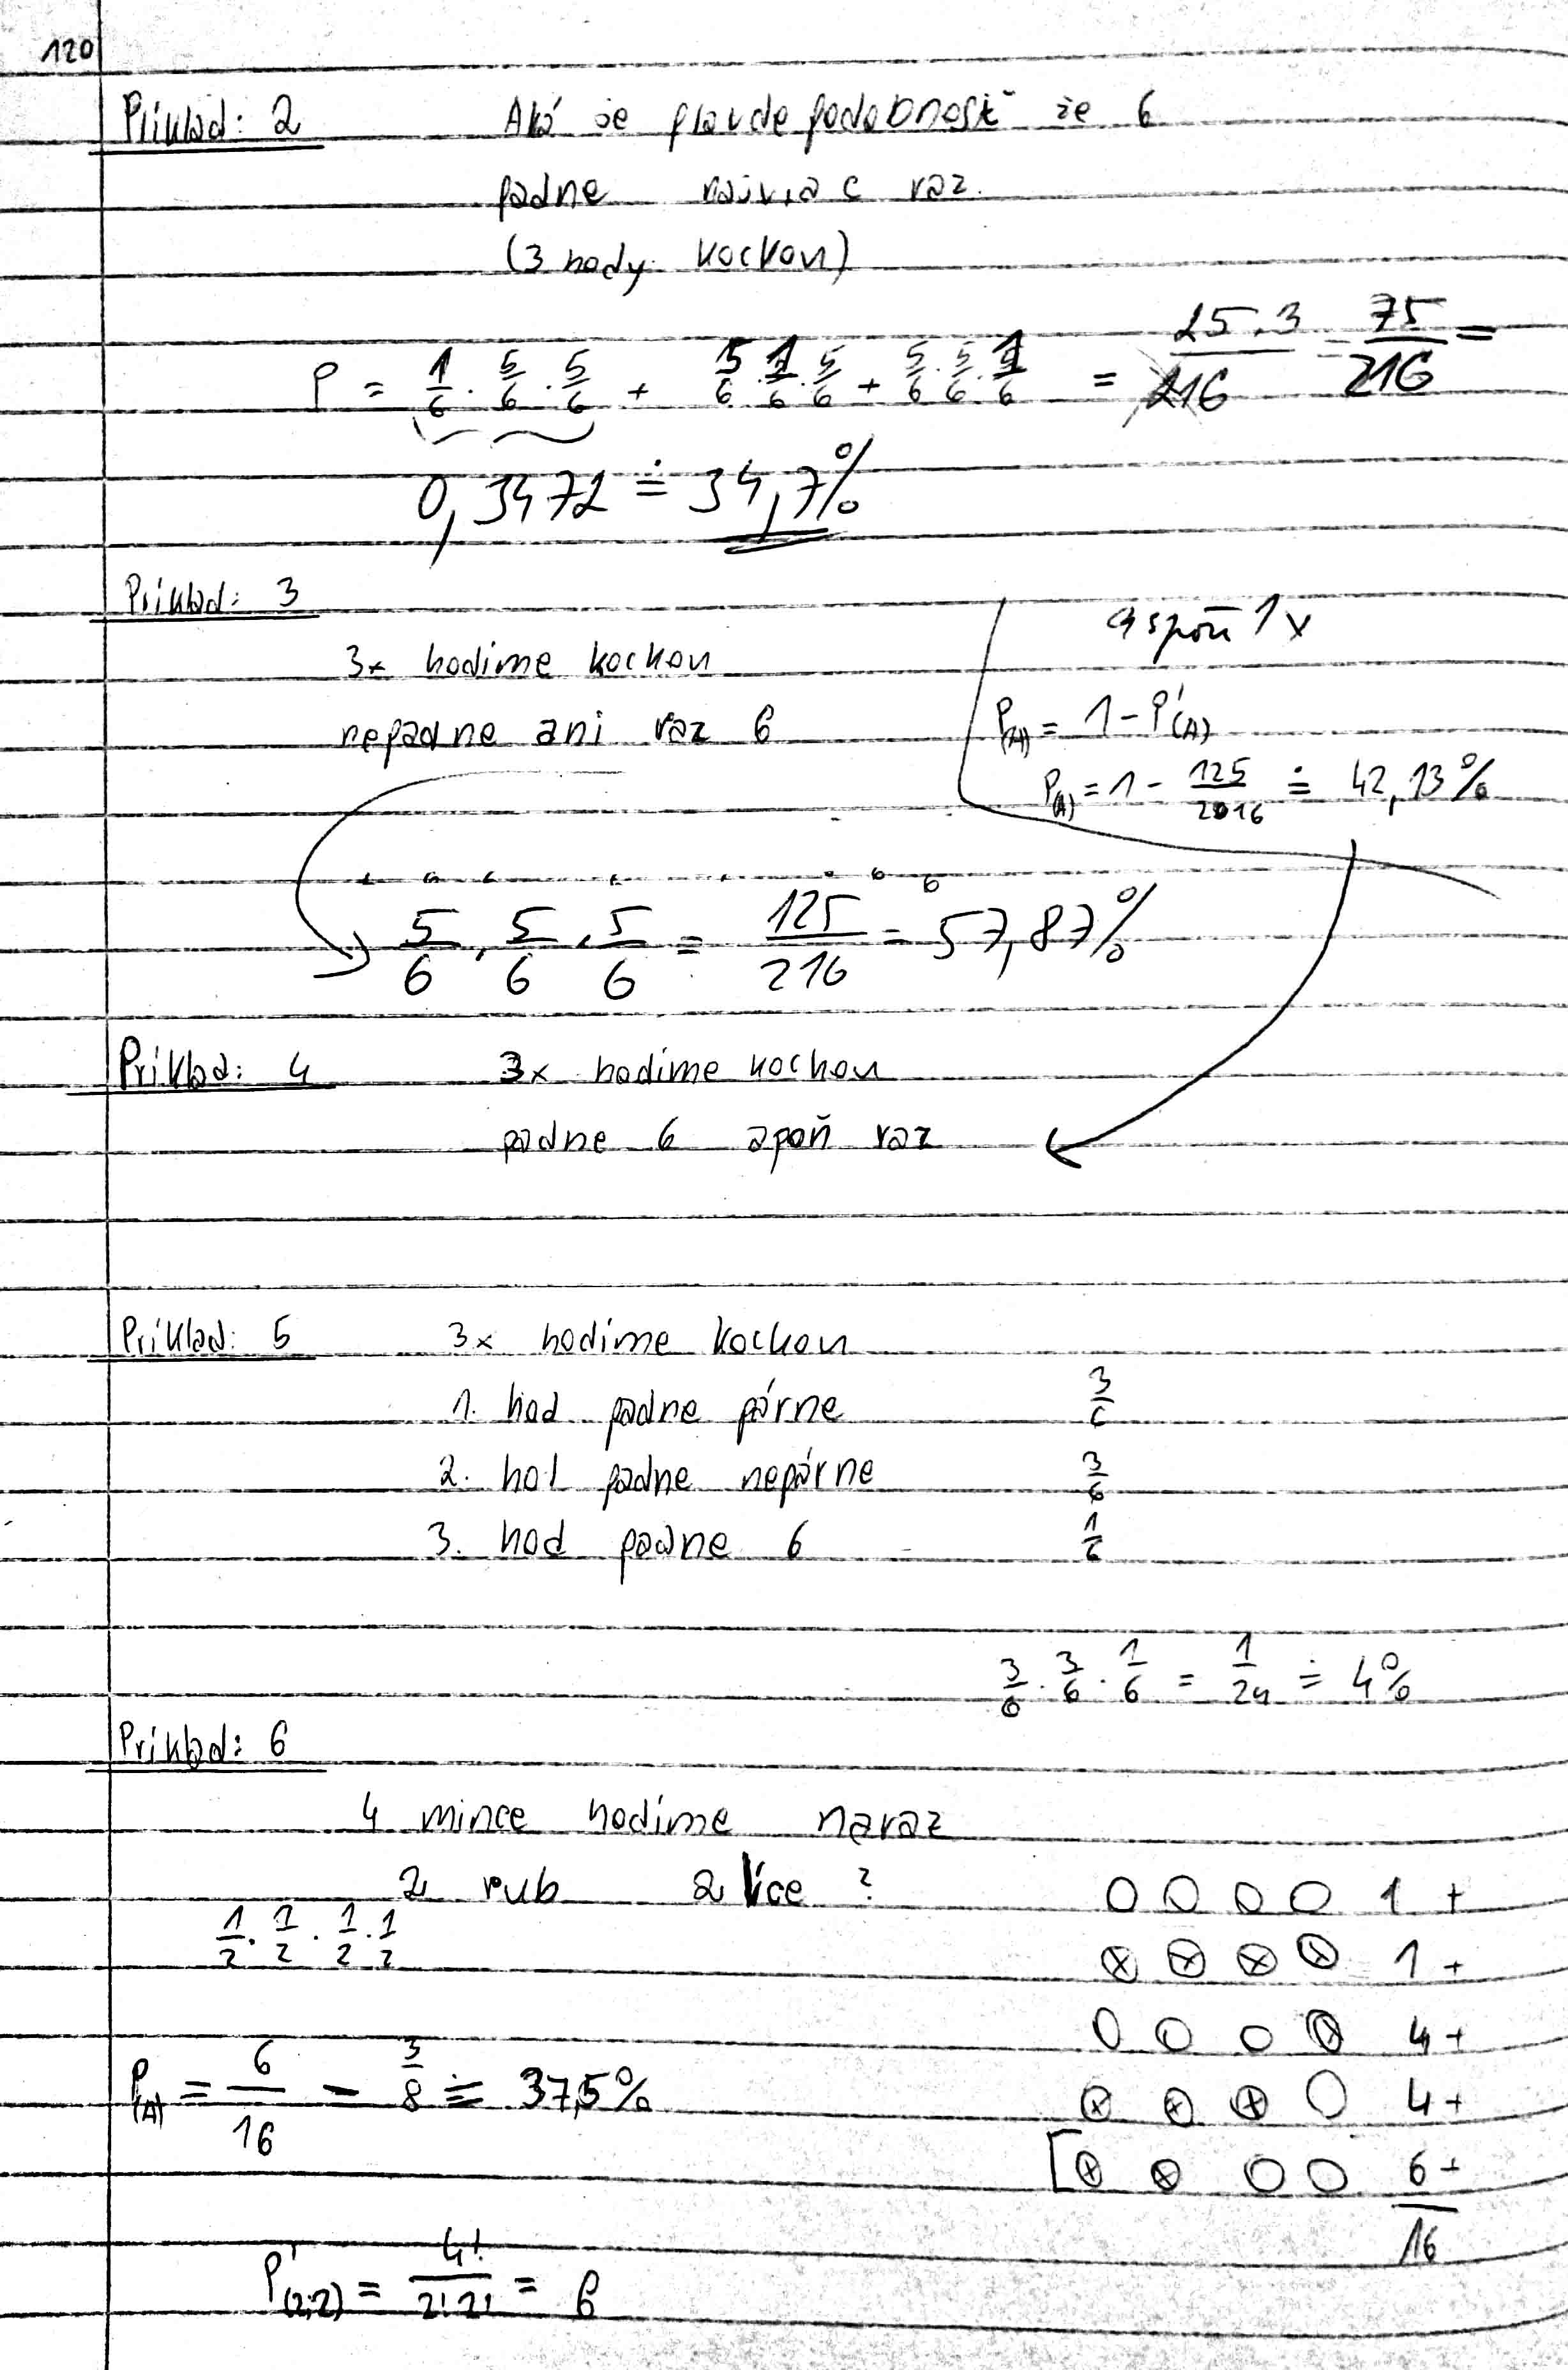 120
Príklad: 2 Aká je pravdepodobnosť že 6
padne najviac raz.
(3 hody kockou)
P = 1/6 · 5/6 · 5/6 + 5/6 · 1/6 · 5/6 + 5/6 · 5/6 · 1/6 = 25.3/216 = 75/216 =
0,3472 ≐ 34,7%
Príklad: 3
3x hodíme kockou
nepadne ani raz 6
aspoň 1x
P(A) = 1 - P'(A)
P(A) = 1 - 125/2016 ≐ 42,13%
5/6 · 5/6 · 5/6 = 125/216 = 57,87%
Príklad: 4 3x hodíme kockou
padne 6 apoň raz
Príklad: 5 3x hodíme kockou
1. hod padne párne 3/6
2. hod padne nepárne 3/6
3. hod padne 6 1/6
3/6 · 3/6 · 1/6 = 1/24 ≐ 4%
Príklad: 6
4 mince hodíme naraz
2 rub 2 líce ?
1/2 · 1/2 · 1/2 · 1/2
O O O O 1 +
⊗ ⊗ ⊗ ⊗ 1 +
O O O ⊗ 4 +
⊗ ⊗ ⊗ O 4 +
[⊗ ⊗ O O 6 +
16
P(A) = 6/16 = 3/8 ≐ 37,5%
P'(2;2) = 4!/2!2! = 6